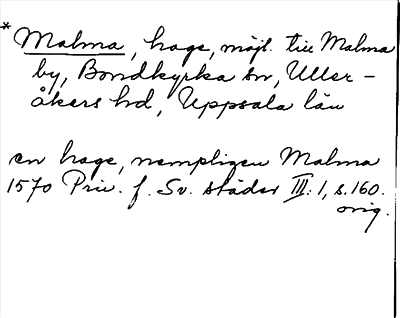 * Malma, hage, möjl. till Malma
by, Bondkyrka sn, Uller-
åkers hd, Uppsala län
en hage, nempligen Malma
1570 Priv. f. Sv. städer III: 1, s. 160.
orig.